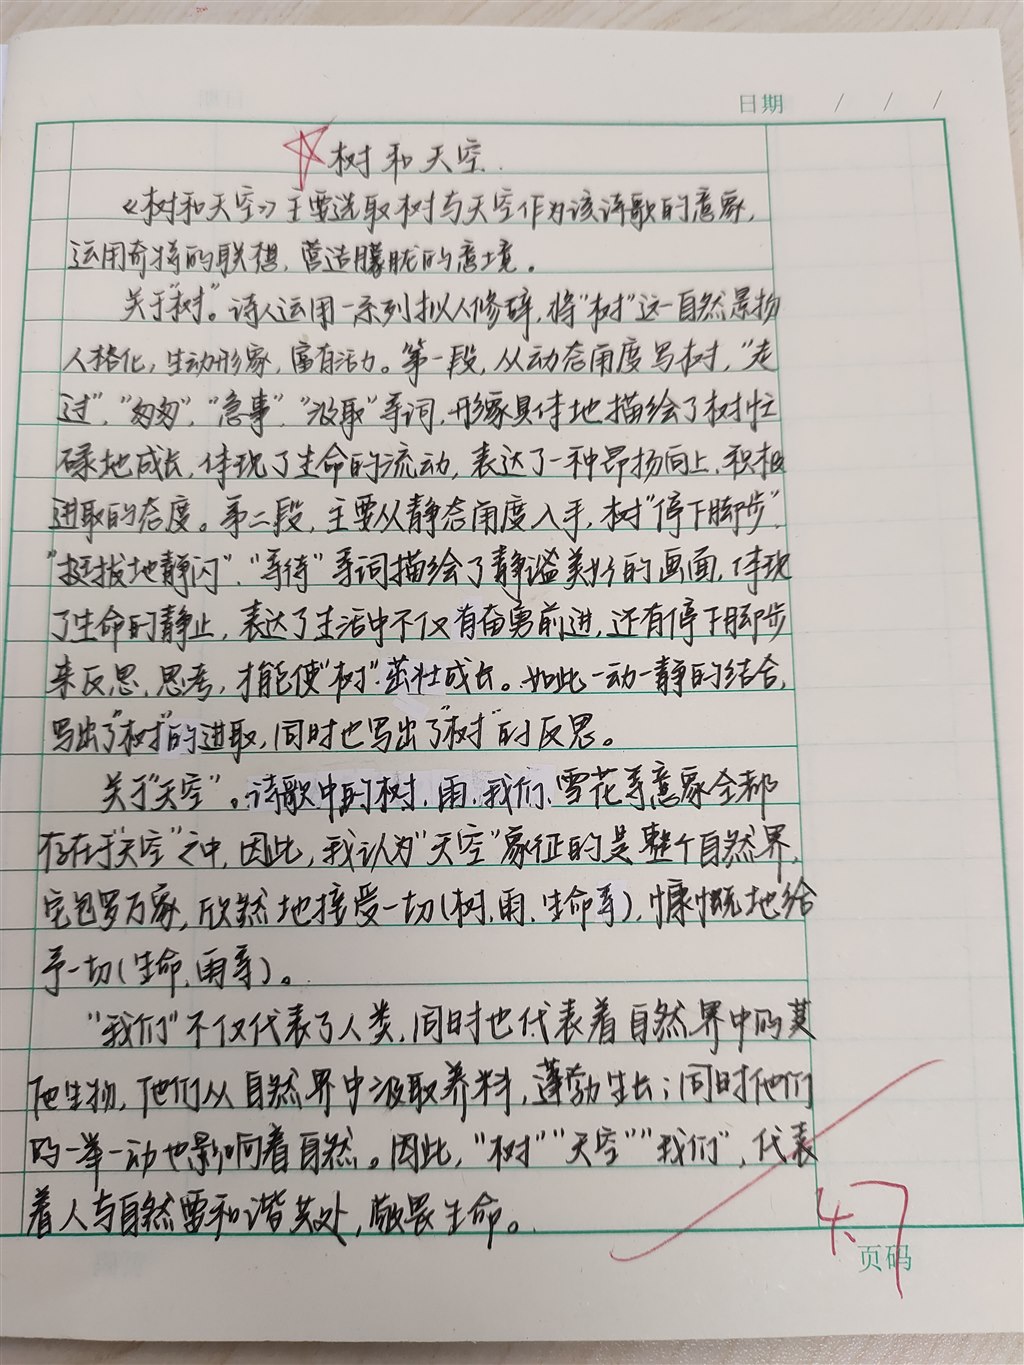 日期 / / /
树和天空
《树和天空》主要选取树与天空作为该诗歌的意象,
运用奇特的联想,营造朦胧的意境。
关于“树”。诗人运用一系列拟人修辞,将“树”这一自然景物
人格化,生动形象,富有活力。第一段,从动态角度写树,“走
过”,“匆匆”,“急事”,“汲取”等词,形象具体地描绘了树忙
碌地成长,体现了生命的流动,表达了一种昂扬向上,积极
进取的态度。第二段,主要从静态角度入手,树“停下脚步”,
“挺拔地静闪”、“等待”等词描绘了静谧美好的画面,体现
了生命的静止,表达了生活中不仅有奋勇前进,还有停下脚步
来反思,思考,才能使“树”茁壮成长。如此一动一静的结合,
写出了“树”的进取,同时也写出了“树”的反思。
关于“天空”。诗歌中的树、雨、我们、雪花等意象全都
存在于“天空”之中,因此,我认为“天空”象征的是整个自然界,
它包罗万象,欣然地接受一切(树,雨、生命等),慷慨地给
予一切(生命,雨等)。
“我们”不仅代表了人类,同时也代表着自然界中的其
他生物,他们从自然界中汲取养料,蓬勃生长;同时他们
的一举一动也影响着自然。因此,“树”“天空”“我们”,代表
着人与自然需和谐共处,敬畏生命。
页码